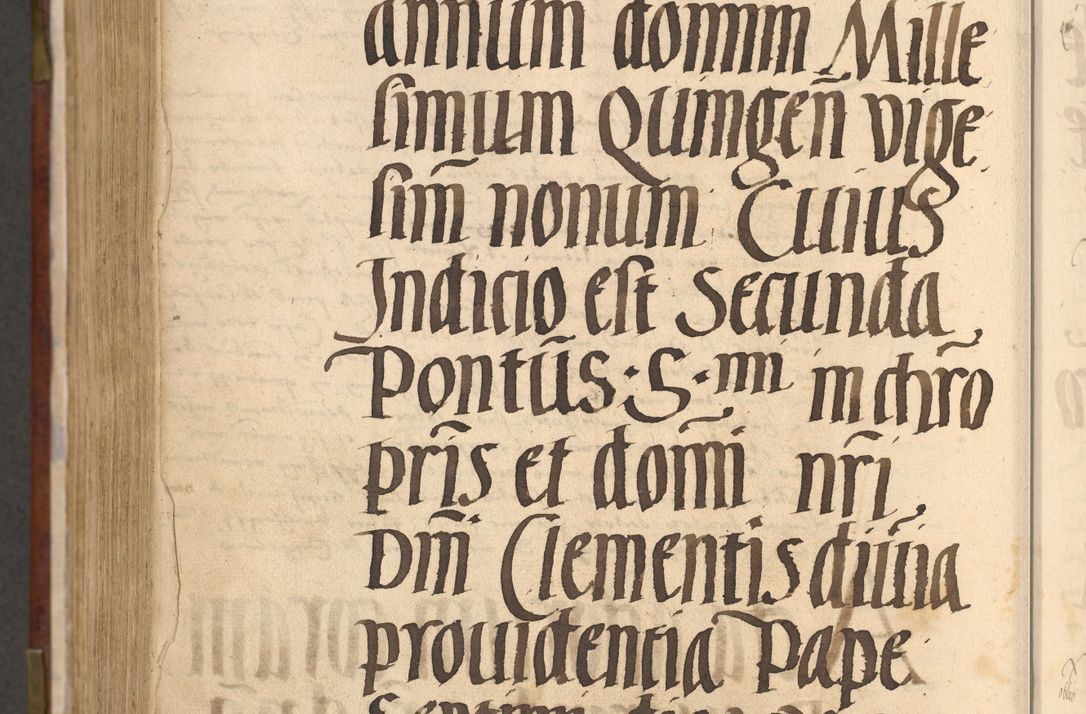 annum domini Mille
simum Quingeñ vige
sim̄ nonum Cuius
Indicio est Secunda
Pontūs · S · mi in chr̄o
pr̄is et domī nr̄i
Dm̄ Clementis diūia
prouidentia Pape